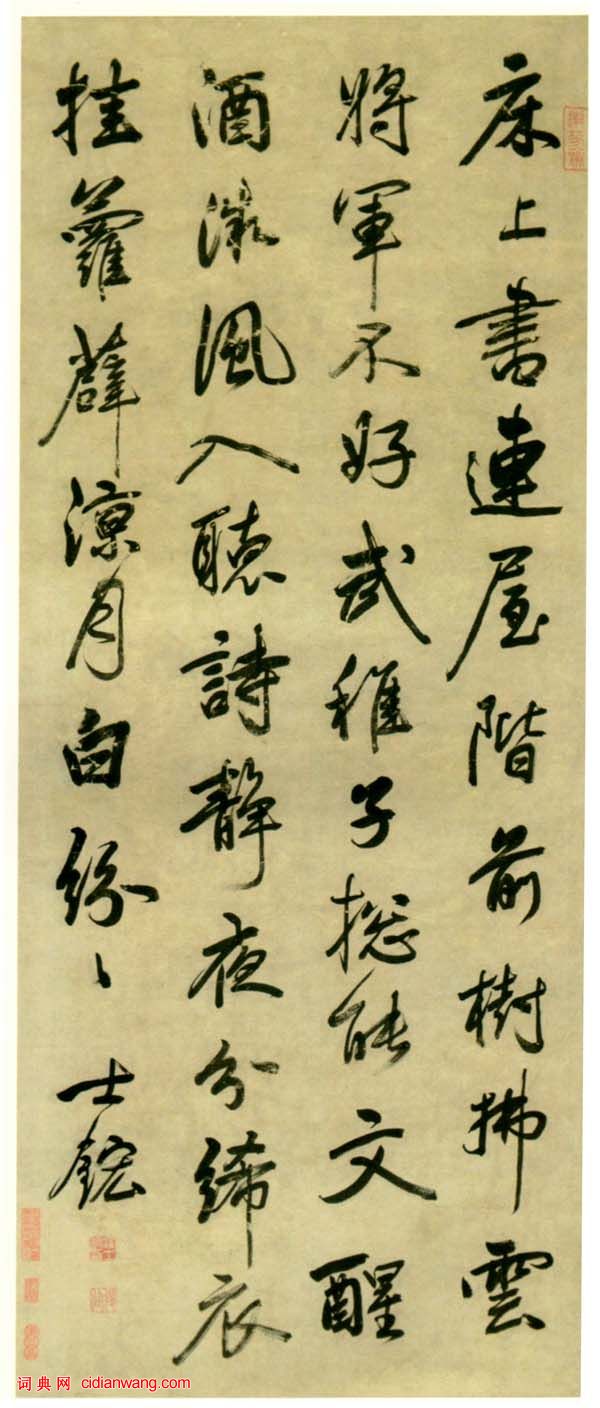 床上書連屋階前樹拂雲
將軍不好武稚子揔能文醒
酒微風入聽詩靜夜分絺衣
挂蘿薜涼月白紛〻 士鋐
词典网 cidianwang.com